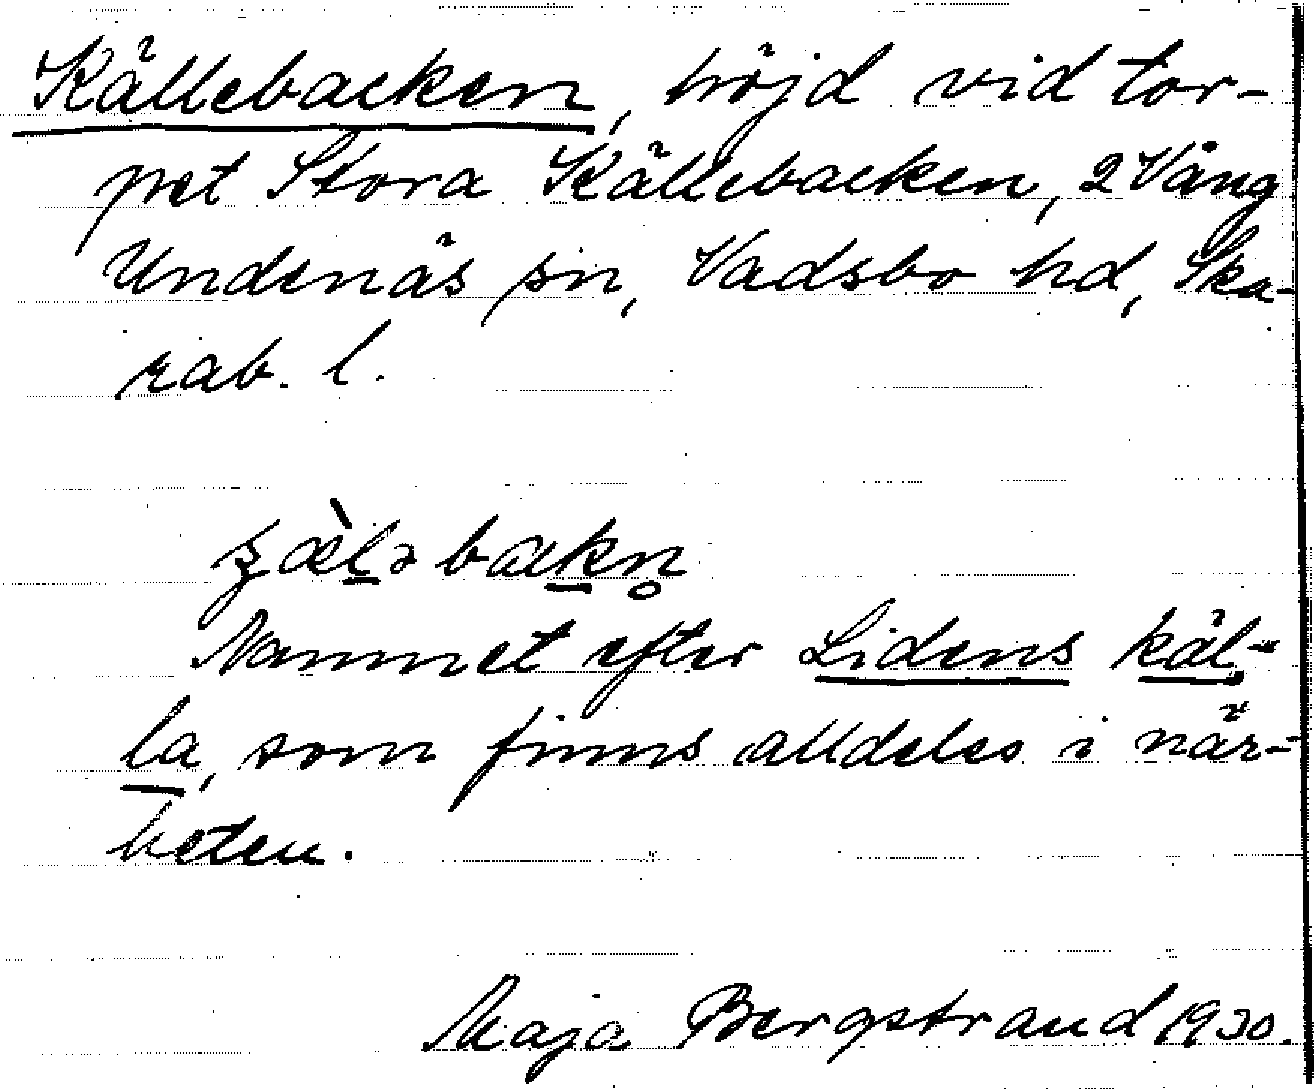 Källebacken, höjd vid tor-
pet Stora Källebacken, 2 Vång
Undenäs sn, Vadsbo hd, Ska-
rab. l.
Namnet efter Lidens käl-
la, som finns alldeles i när-
heten.
Maja Bergstrand 1930.